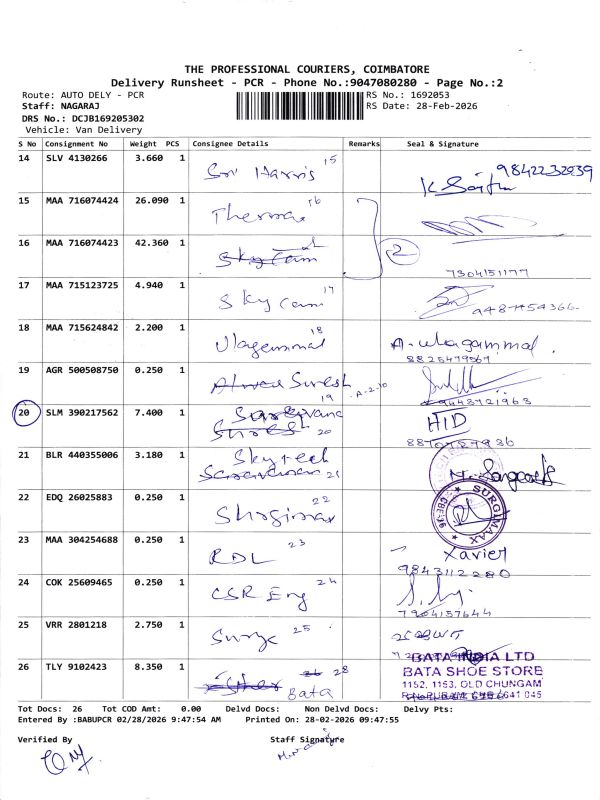 THE PROFESSIONAL COURIERS, COIMBATORE
Delivery Runsheet - PCR - Phone No.:9047080280 - Page No.:2
Route: AUTO DELY - PCR
RS No.: 1692053
Staff: NAGARAJ
RS Date: 28-Feb-2026
DRS No.: DCJB169205302
Vehicle: Van Delivery
S No Consignment No Weight PCS Consignee Details Remarks Seal & Signature
14 SLV 4130266 3.660 1 Sri Harris 15 9842232939
15 MAA 716074424 26.090 1 16
16 MAA 716074423 42.360 1 2 7304151177
17 MAA 715123725 4.940 1 Sky Cam 17
18 MAA 715624842 2.200 1 Ulagammal 18 A. ulagammal
19 AGR 500508750 0.250 1 Suresh 19
20 SLM 390217562 7.400 1 Suresh 20
21 BLR 440355006 3.180 1 Skytech 21
22 EDQ 26025883 0.250 1 22 SURGIMAAX
23 MAA 304254688 0.250 1 RDL 23 Xavier
9843112280
24 COK 25609465 0.250 1 CSR Eng 24
7904157644
25 VRR 2801218 2.750 1 Surya 25
26 TLY 9102423 8.350 1 28 Bata
BATA INDIA LTD
BATA SHOE STORE
1152, 1153, OLD CHUNGAM
641 045
Tot Docs: 26 Tot COD Amt: 0.00 Delvd Docs: Non Delvd Docs: Delvy Pts:
Entered By :BABUPCR 02/28/2026 9:47:54 AM Printed On: 28-02-2026 09:47:55
Verified By Staff Signature